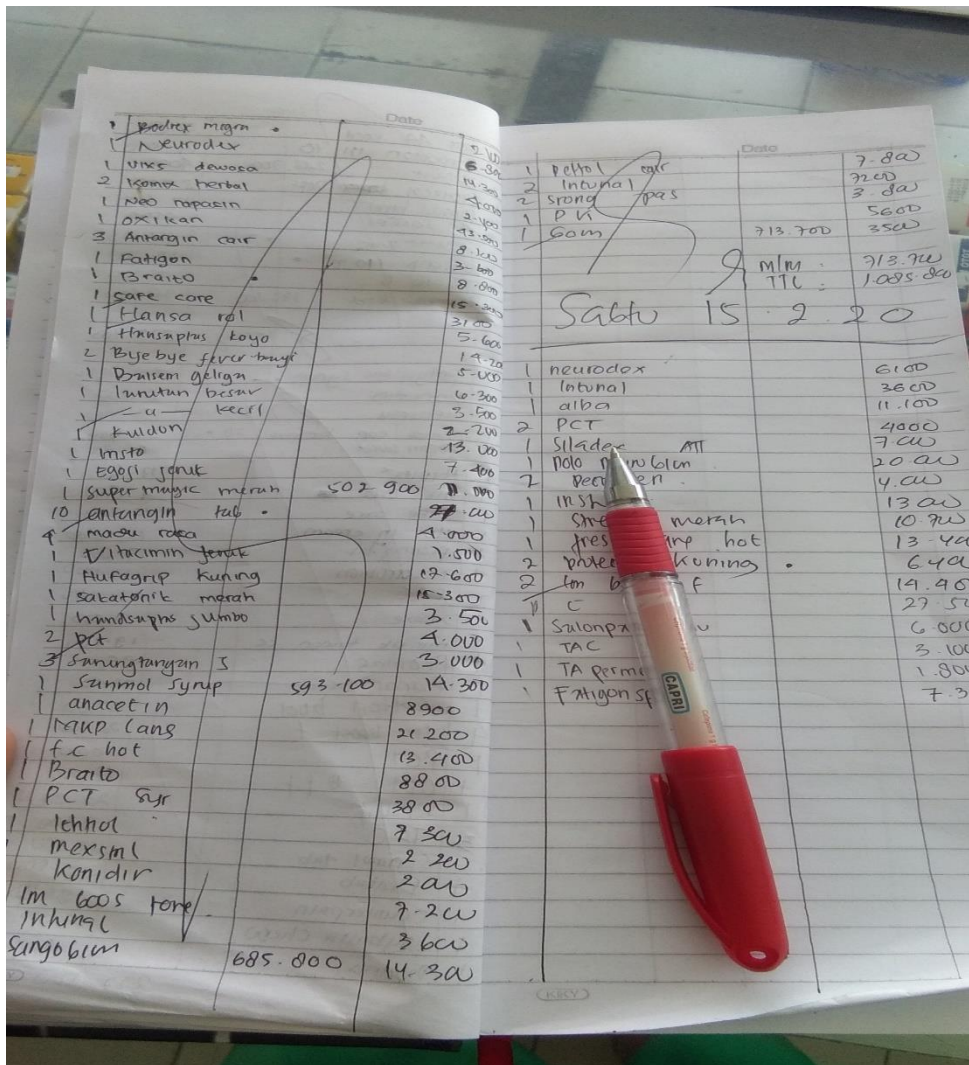 Date
1 Bodrex migrn
1 Neurodex
1 Vixs dewasa
2 Komix herbal 14.300
1 Neo napasin 4000
1 oxikan 2.400
3 Antangin cair 13.500
1 Fatigon 8.100
1 Braito 3.600
8.800
1 safe care 15.300
1 Hansa rol 3100
1 Hansaplus koyo 5.600
2 Bye bye fever bayi
1 Balsem geliga 5.000
1 lunutan besar 6.300
1 — u — kecil 3.500
1 Kuldon 2.200
1 Insto 13.000
1 Egoji jeruk 7.400
1 super magic merah 502 900
10 antangin tab
madu rasa 4.000
1 Vitacimin jeruk 1.500
1 Hufagrip Kuning 12.600
1 sakatonik merah 15.300
1 handsaplus jumbo 3.500
2 pct 4.000
3 Sarungtangan S 3.000
1 Sanmol syrup 593.100 14.300
1 anacetin 8900
1 takp lang 21 200
1 f.c hot 13.400
1 Braito 8800
1 PCT Syr 3800
1 7 300
mexsml 2 200
Konidir 200
Im boos 7.200
3600
Sangobion 685.800 14.300
Date
1 Dettol cair 7.800
2 Intunal 7200
2 strong pas 3.800
1 PK 5600
1 Gom 713.700 3500
M/M : 713.700
TTL : 1.085.800
Sabtu 15.2.20
1 neurodex 6100
1 Intunal 3600
1 alba 11.100
2 PCT 4000
1 Siladex ATT 7.000
1 20.000
2 4.000
1 13.000
1 merah 10.700
1 hot 13.400
2 Kuning 6.400
2 14.400
C 27.500
1 6.000
1 TAC 3.100
1 TA 1.800
1 Fatigon 7.3
CAPRI
(KIKY)